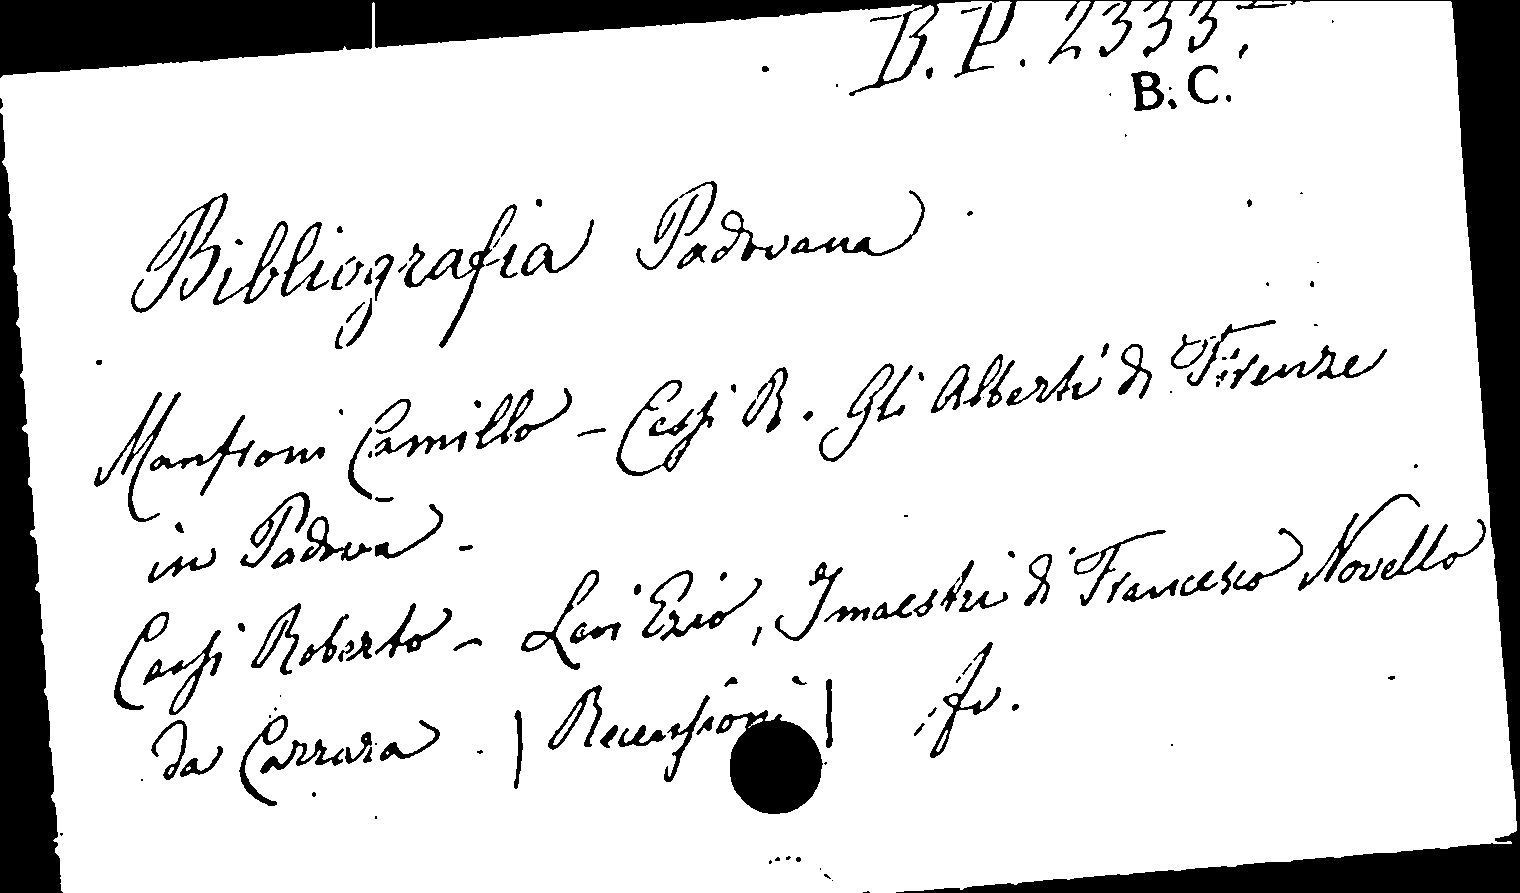 B.P. 2333.
B.C.
Bibliografia Padovana
Manfroni Camillo - Cessi R. Gli Alberti di Firenze
in Padova -
Cessi Roberto - Levi Ezio, I maestri di Francesco Novello
da Carrara | Recensioni |